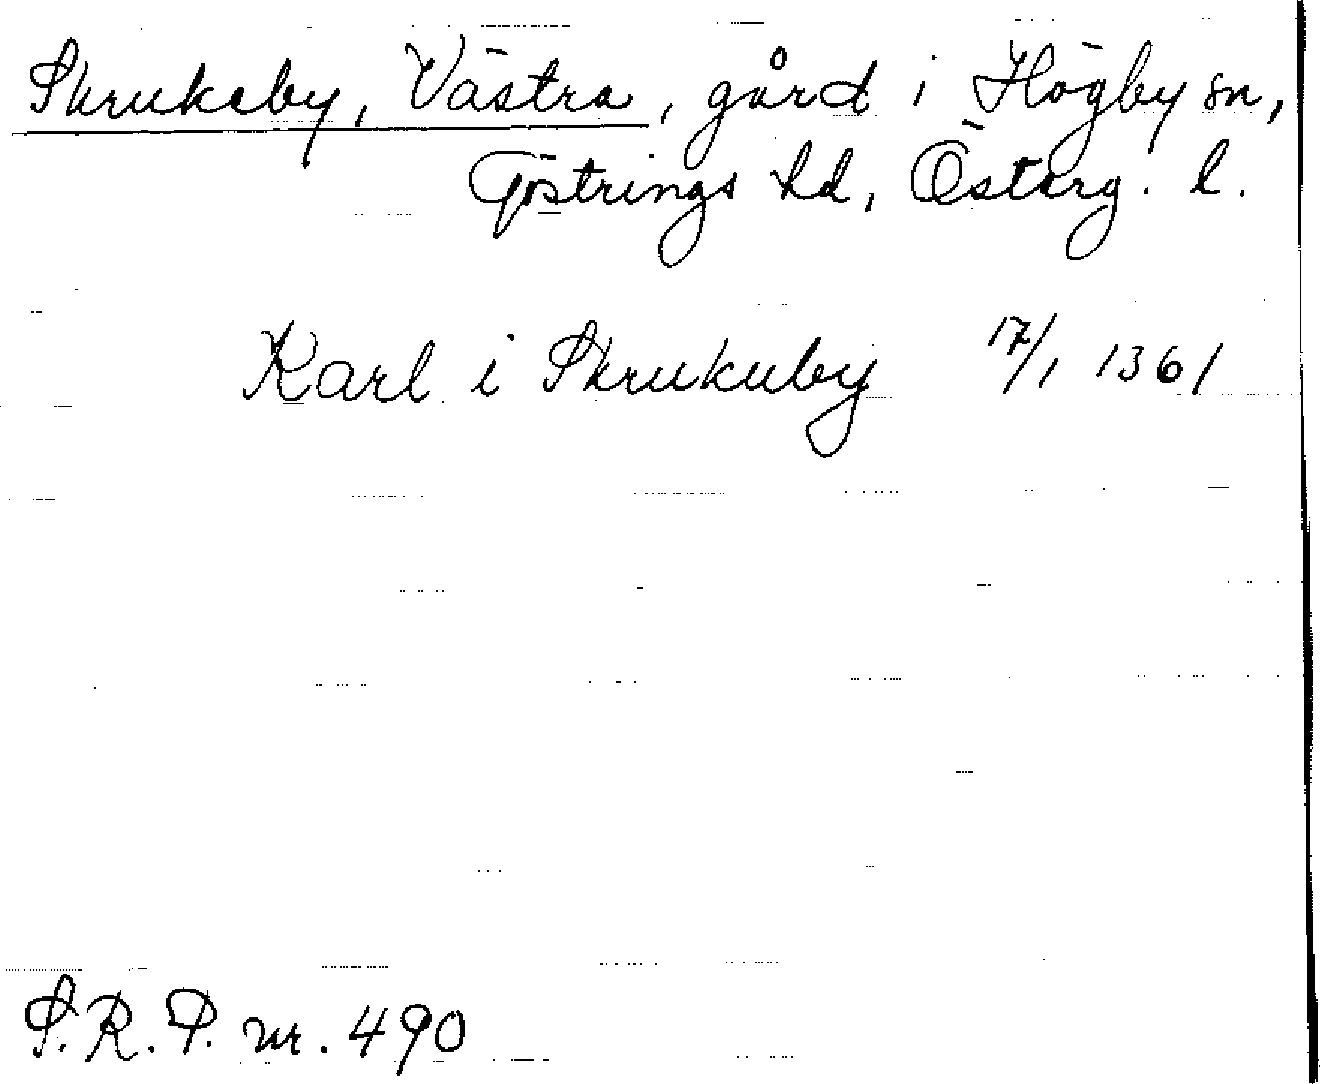 Skrukeby, Västra, gård i Högby sn,
Göstrings hd, Österg. l.
Karl i Skrukuby 17/1 1361
S.R.P. nr. 490